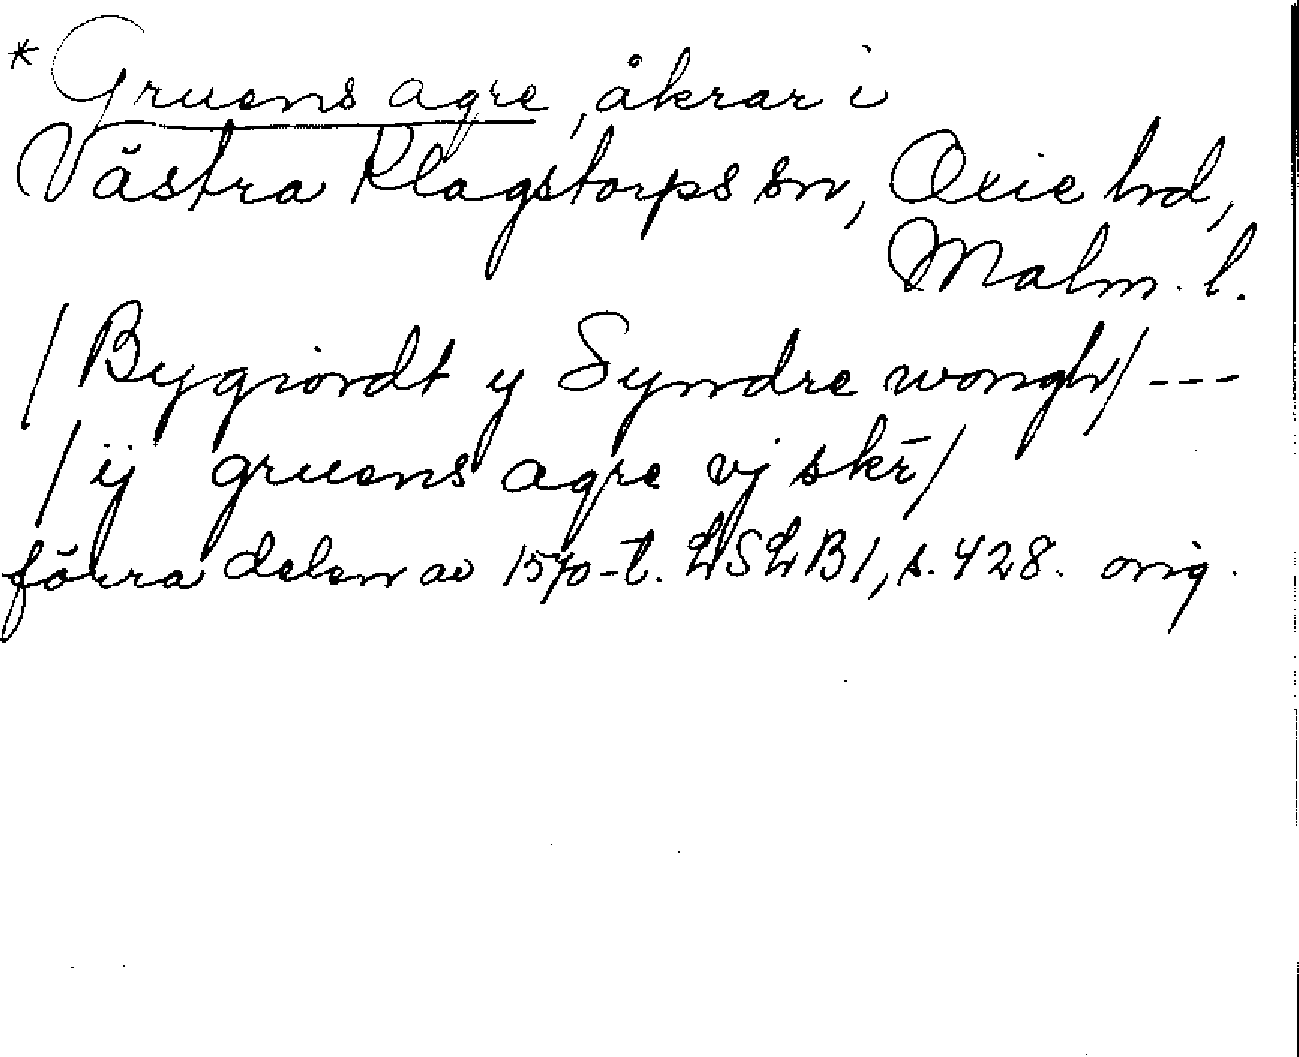 * Gruens agre, åkrar i
Västra Klagstorps sn, Oxie hd,
Malm. l.
/ Bygiordt y Syndre wongh / ---
/ ij gruens agre vj skr̄ /
förra delen av 1570-t. LSLB1, s. 428. orig.